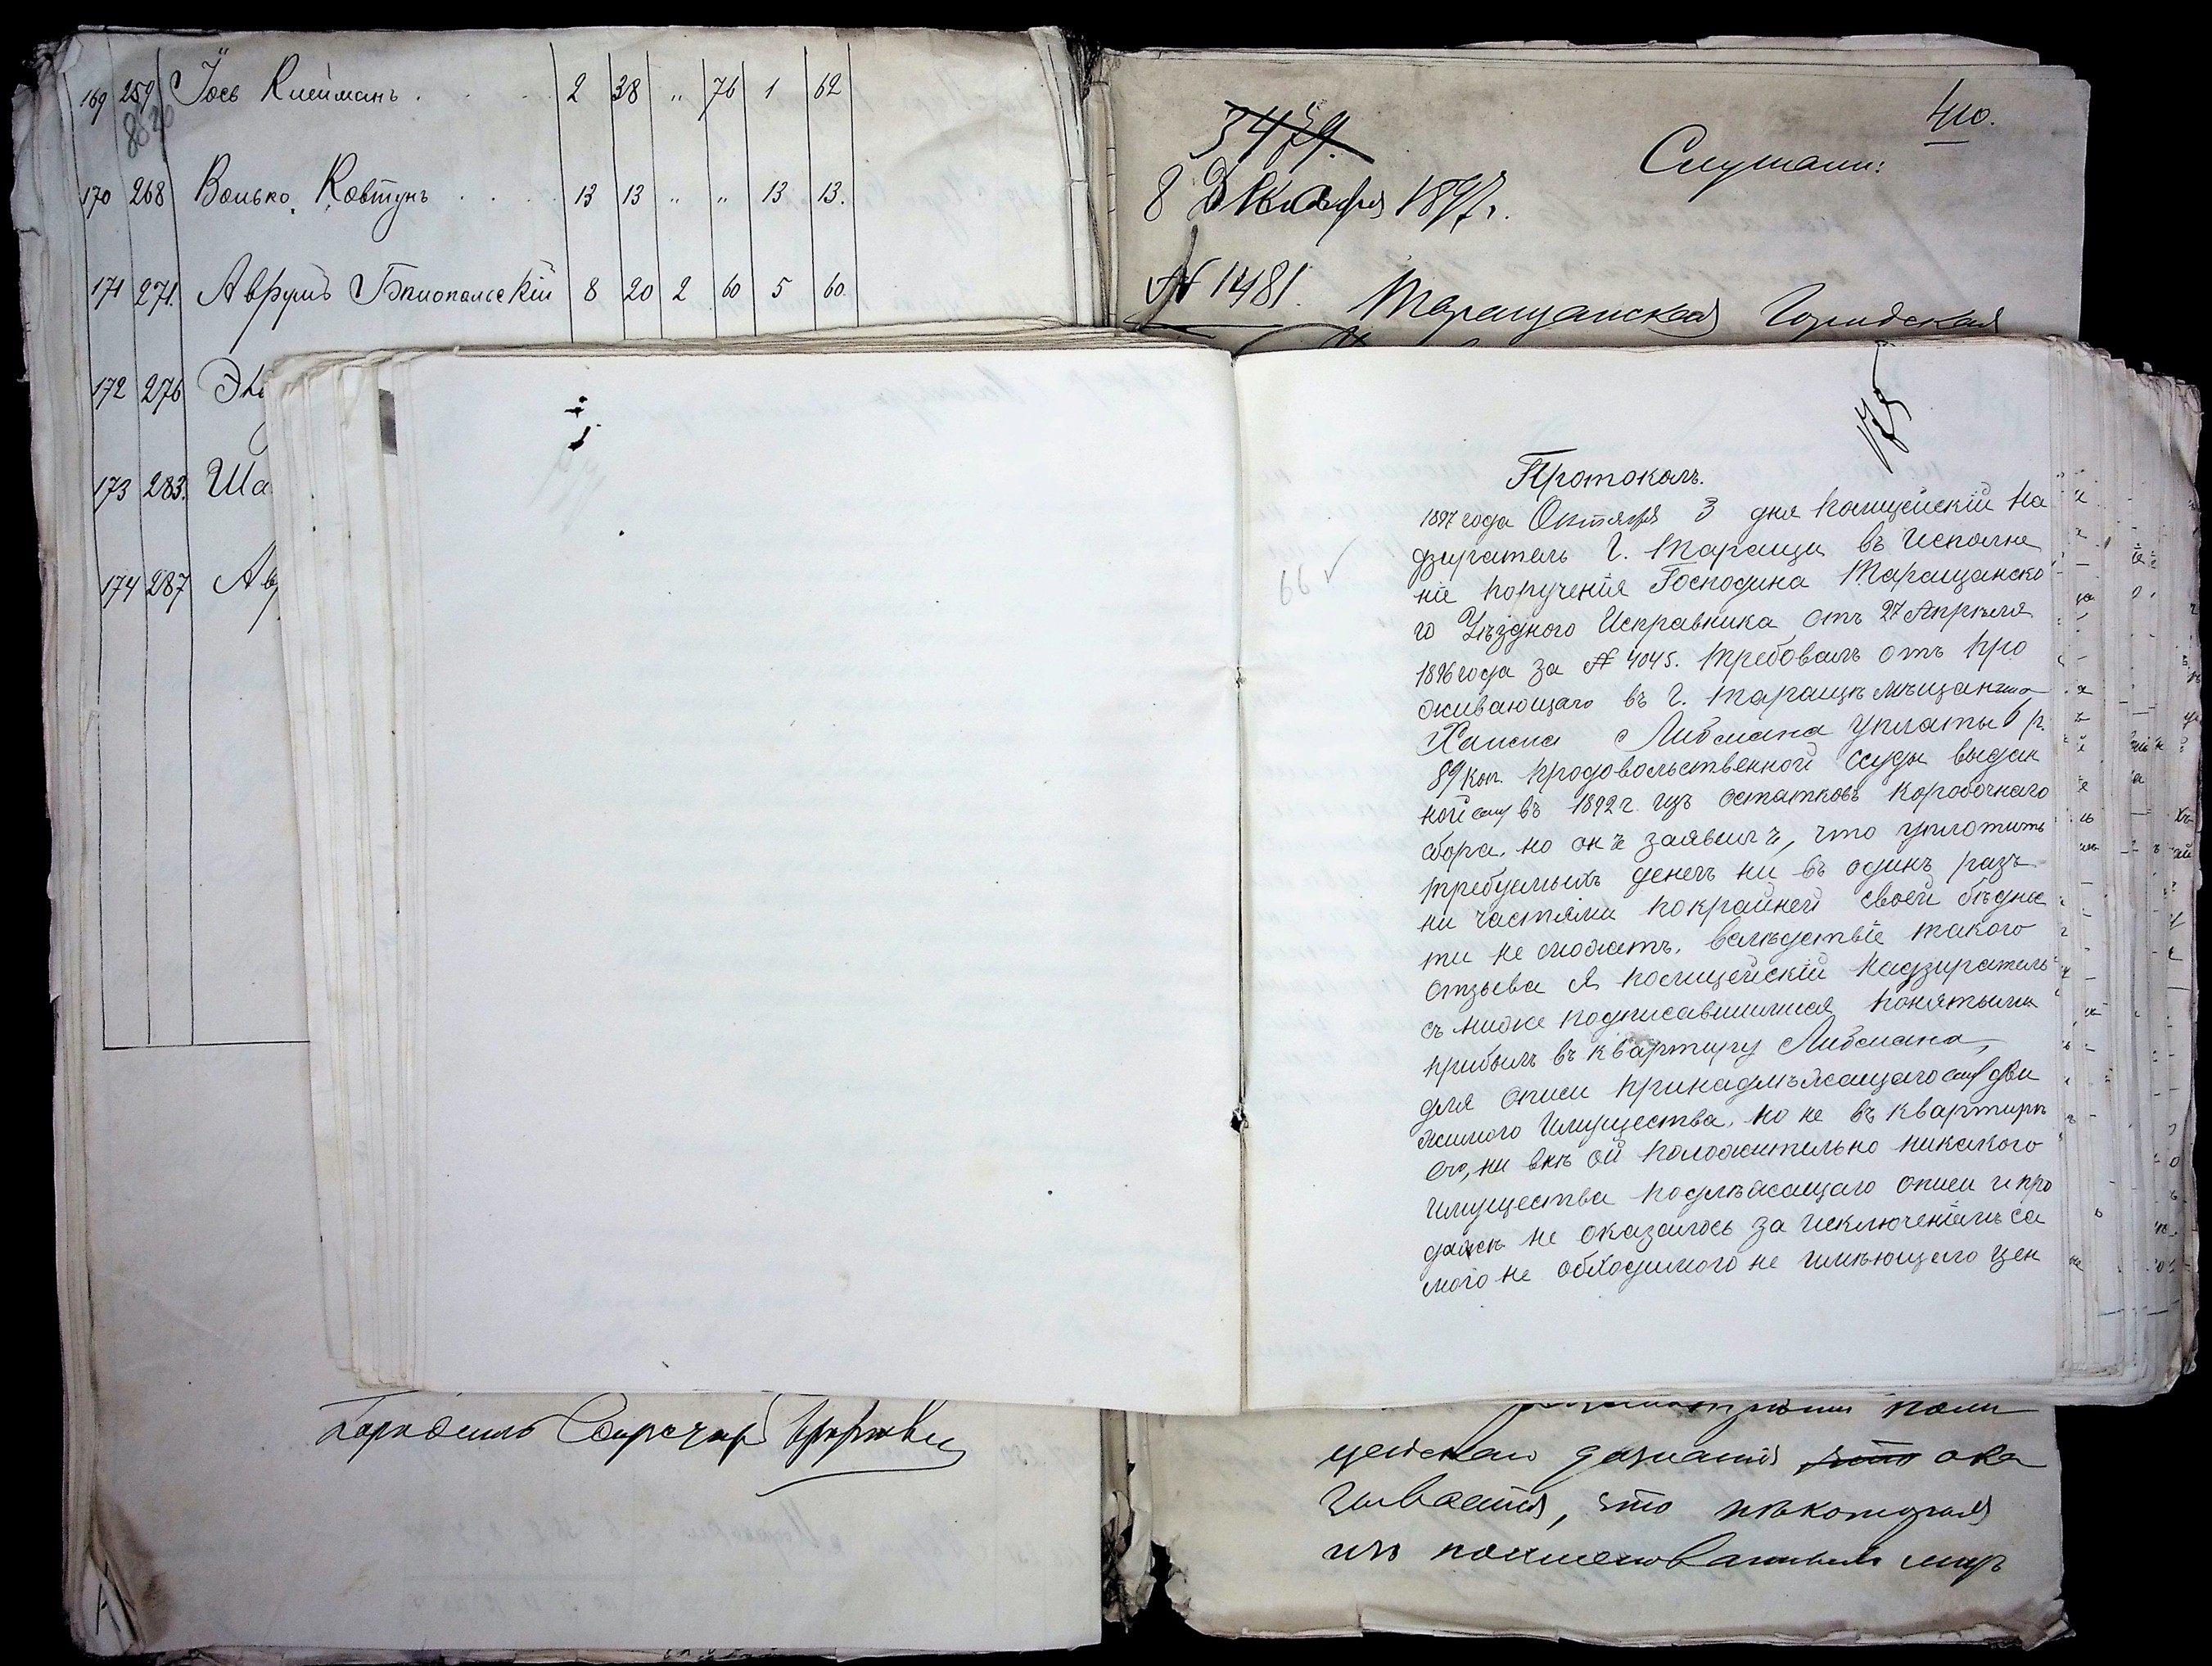 169 259 Іось Клейманъ . . . 2 38 " 76 1 62
170 268 Волько Ковтунъ . . . 13 13 " " 13 13.
171 271. Аврумъ Бялопольскій 8 20 2 60 5 60.
172 276
173 283. Ша
174 287 Ав
410.
Слушали:
8 Декабря 1897г.
№ 1481. Таращанская Городская
175
Протоколъ.
1897 года Октября 3 дня Полицейскій На
дзиратель г. Таращи въ исполне
ніе порученія Господина Таращанско
го Уѣзднаго Исправника отъ 27 Апрѣля
1896 года за № 4045. требовалъ отъ про
живающаго въ г. Таращѣ мѣщанина
Хаима Либмана уплаты 6 р.
89 коп. продовольственной ссуды выдан
ной ему въ 1892 г. изъ остатковъ коробочнаго
сбора, но онъ заявилъ, что уплотить
требуемыхъ денегъ ни въ одинъ разъ
ни частями покрайней своей бѣднос
ти не можетъ, вслѣдствіе такого
отзыва я полицейскій надзиратель
съ ниже подписавшимися понятыми
прибылъ въ квартиру Либмана,
для описи принадлѣжащаго ему дви
жимого имущества, но не въ квартирѣ
его, ни внѣ ой положительно никакого
имущества подлѣжащаго описи и про
дажѣ не оказалось за исключеніемъ са
мого не обходимого не имѣющего цен
66 ✓
поли
цейскаго дознанія ока
зывается, что нѣкоторыя
изъ поименованныхъ лицъ